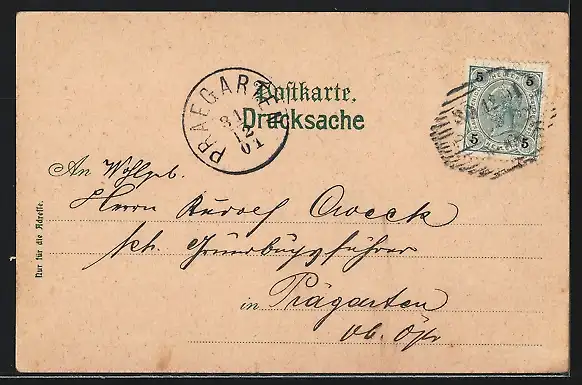 Postkarte.
Drucksache
PRAEGARTEN
31
12
01
5 5
5 5
An Wohlgeb.
Herrn Rudolf
kk. Grundbuchsführer
in Prägarten
Ob. Öst
Nur für die Adresse.